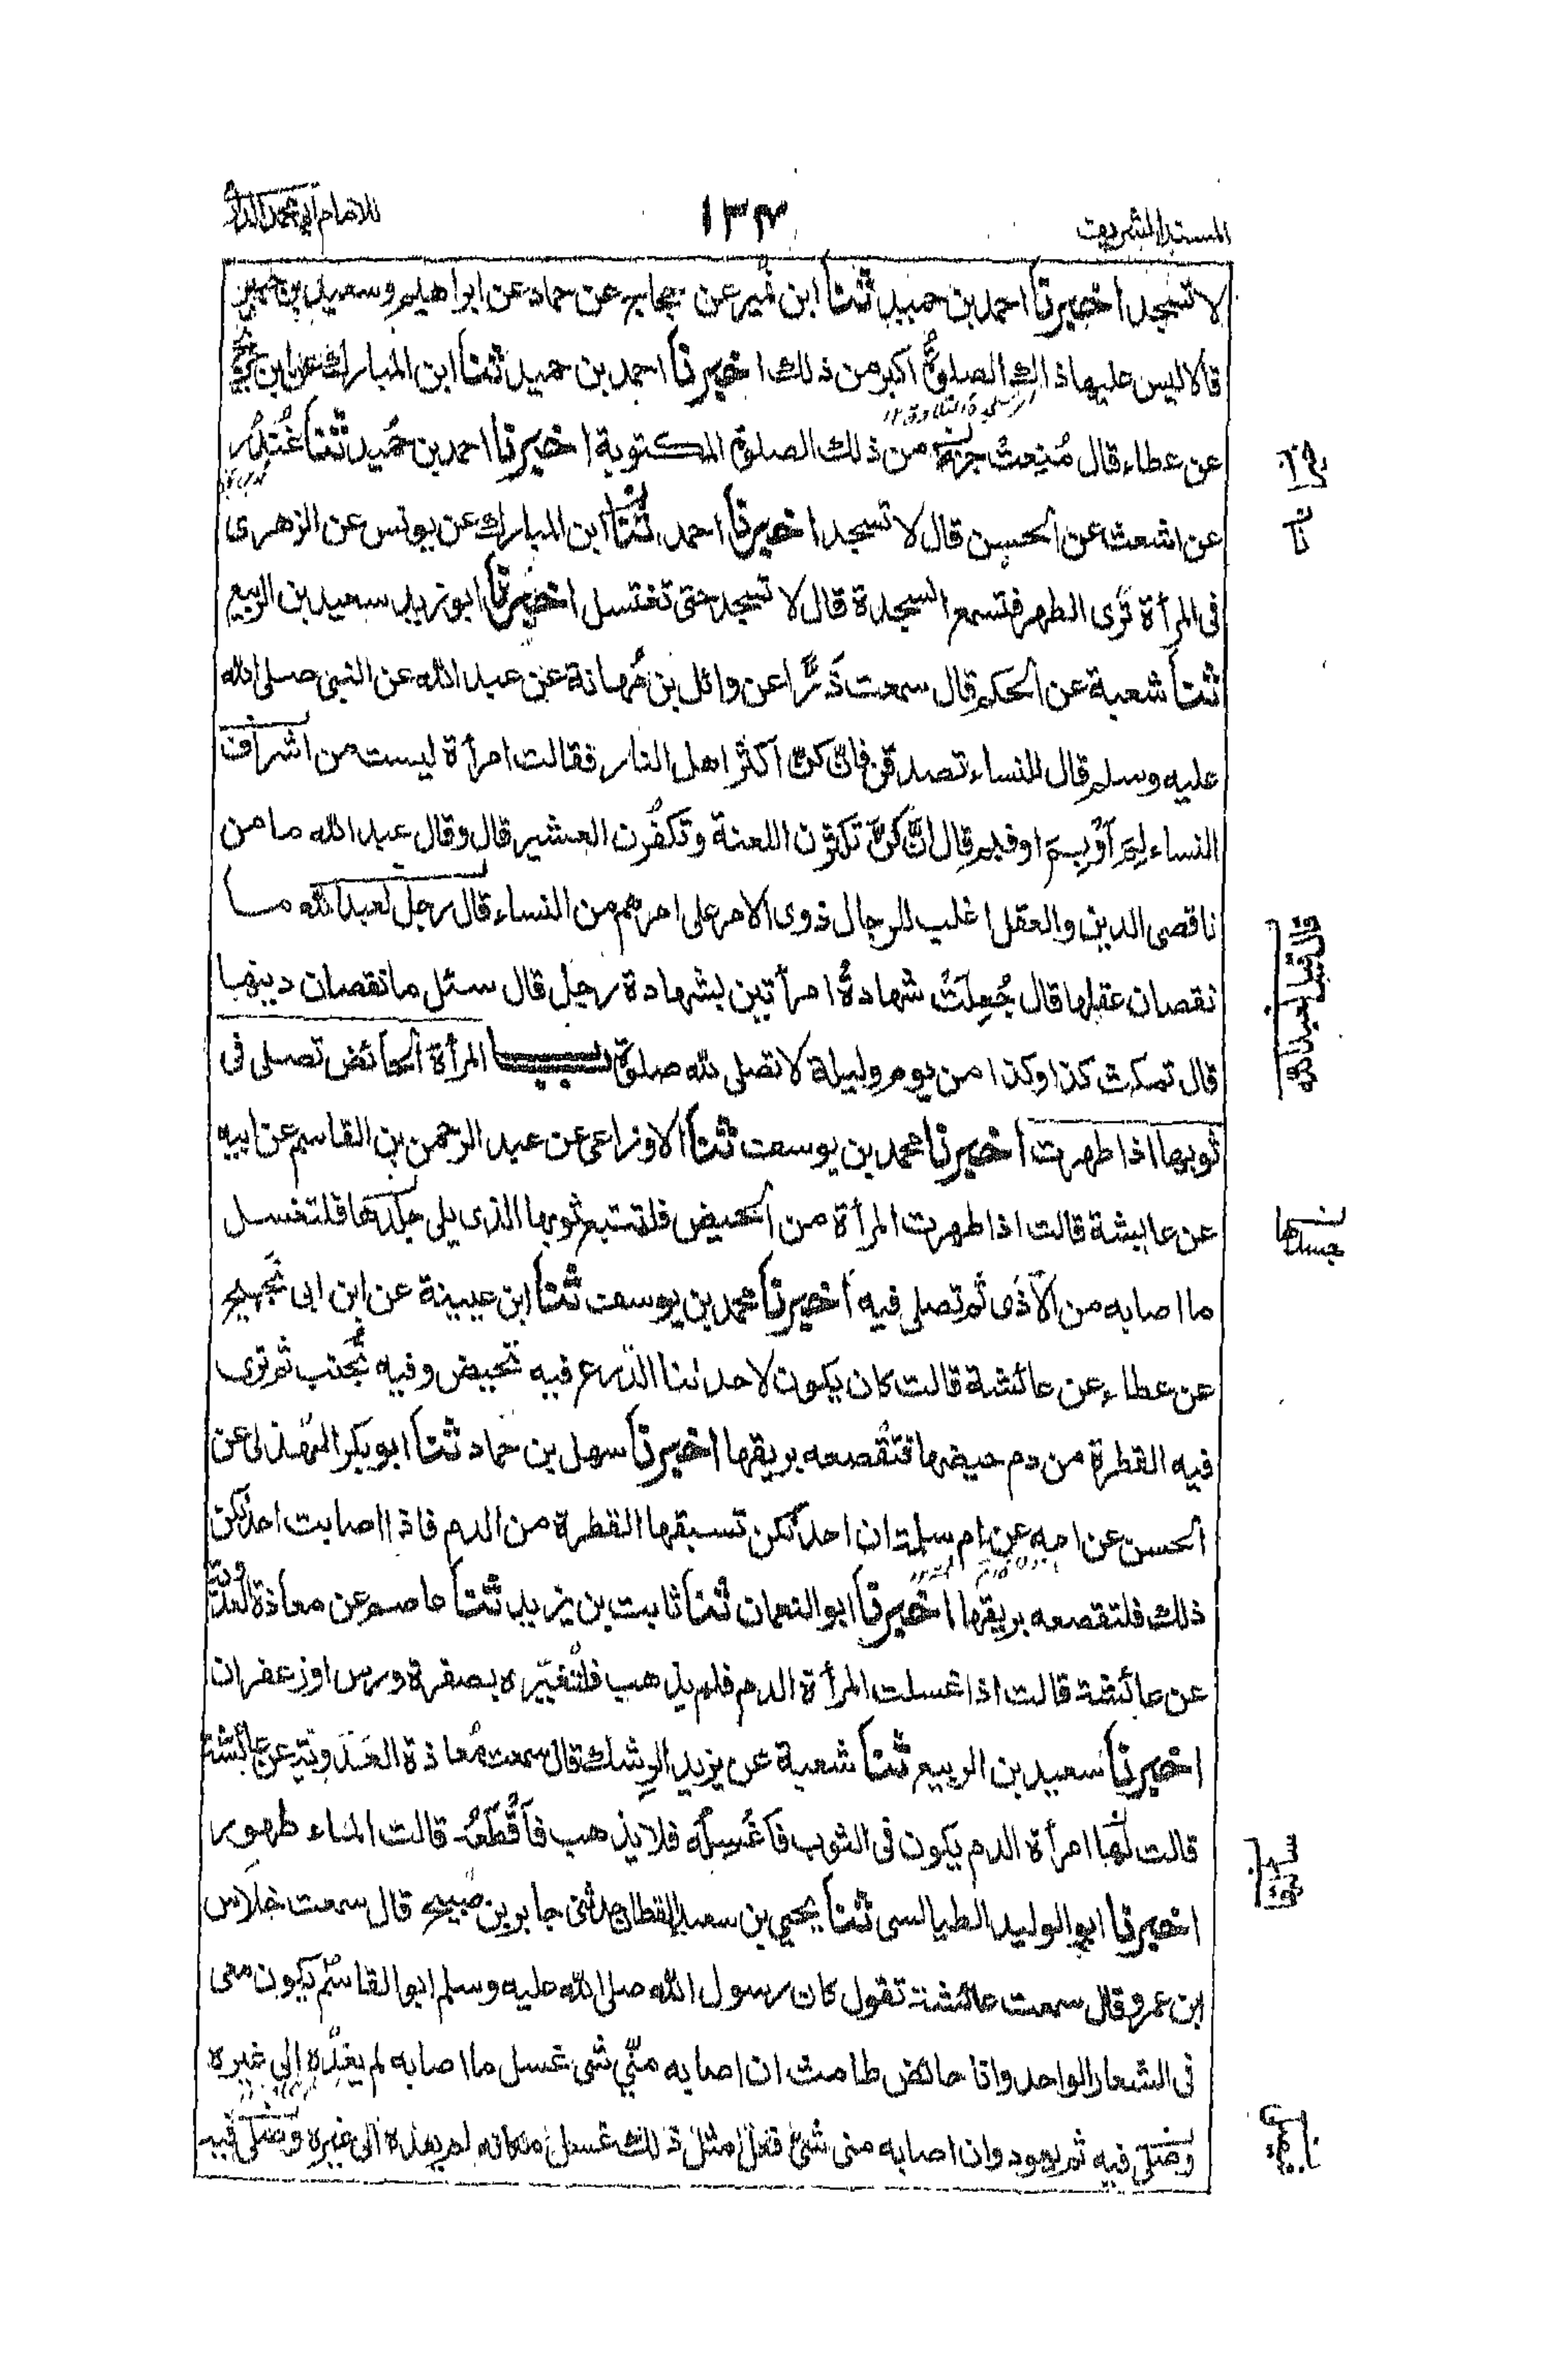 المسند الشريف
١٣٤
للامام ابي محمد الدارمي
لا تسجد اخبرنا احمد بن حميد ثنا ابن نمير عن حجاج عن حماد عن ابراهيم وسعيد بن جبير
قالا ليس عليها ذاك الصلوة اكبر من ذلك اخبرنا احمد بن حميد ثنا ابن المبارك عن ابن جريج
عن عطاء قال مُنِعتْ خيرا من ذلك الصلوة المكتوبة اخبرنا احمد بن حُميد ثنا غُنْدُر
عن اشعث عن الحسن قال لا تسجد اخبرنا احمد ثنا ابن المبارك عن يونس عن الزهرى
فى المرأة تَرى الطهر فتسمع السجدة قال لا تسجد حتى تغتسل اخبرنا ابو زيد سعيد بن الربيع
ثنا شعبة عن الحكم قال سمعت ذَرًّا عن وائل بن مُهانة عن عبد الله عن النبى صلى الله
عليه وسلم قال للنساء تصدقن فانّكنّ اكثر اهل النار فقالت امرأة ليست من اشراف
النساء لِمَ اَوْ بِمَ او فيم قال انّكنّ تكثرن اللعنة وتكفُرن العشير قال وقال عبد الله ما من
ناقصى الدين والعقل اغلب للرجال ذوى الامر على امرهم من النساء قال رجل لعبد الله ما
نقصان عقلها قال جُعِلَتْ شهادةُ امرأتين بشهادة رجل قال سئل ما نقصان دينها
قال تمكث كذا وكذا من يوم وليلة لا تصلى لله صلوة باب المرأة الحائض تصلى فى
ثوبها اذا طهرت اخبرنا محمد بن يوسف ثنا الاوزاعى عن عبد الرحمن بن القاسم عن ابيه
عن عايشة قالت اذا طهرت المرأة من الحيض فلتتتبع ثوبها الذى يلى جلدها فلتغسل
ما اصابه من الاَذى ثم تصلى فيه اخبرنا محمد بن يوسف ثنا ابن عيينة عن ابن ابى نَجِيح
عن عطاء عن عائشة قالت كان يكون لاحدٰننا الدّرع فيه تحيض وفيه تُجنب ثم ترى
فيه القطرة من دم حيضها فتقصعه بريقها اخبرنا سهل بن حماد ثنا ابو بكر الهُذلى عن
الحسن عن امه عن ام سلمة ان احدٰكن تسبقها القطرة من الدم فاذا اصابت احدٰكن
ذلك فلتقصعه بريقها اخبرنا ابو النعمان ثنا ثابت بن يزيد ثنا عاصم عن معاذة العدوية
عن عائشة قالت اذا غسلت المرأة الدم فلم يذهب فلتُغيّره بصفرة ورس او زعفران
اخبرنا سعيد بن الربيع ثنا شعبة عن يزيد الرِشك قال سمعت مُعاذة العَدَوية عن عائشة
قالت لها امرأة الدم يكون فى الثوب فاَغْسِلُه فلا يذهب فاَقْطَعُه قالت الماء طهور
اخبرنا ابو الوليد الطيالسى ثنا يحيى بن سعيد القطان حدثنى جابر بن صُبيح قال سمعت خلاس
ابن عمرو قال سمعت عائشة تقول كان رسول الله صلى الله عليه وسلم ابو القاسم يكون معى
فى الشعار الواحد وانا حائض طامث ان اصابه منّي شىء غسل ما اصابه لم يعدُه الى غيره
وصلى فيه ثم يعود وان اصابه منى شئ فعل مثل ذلك غسل مكانه لم يعده الى غيره وصلى فيه
قال قيل لعبد الله
جسدها